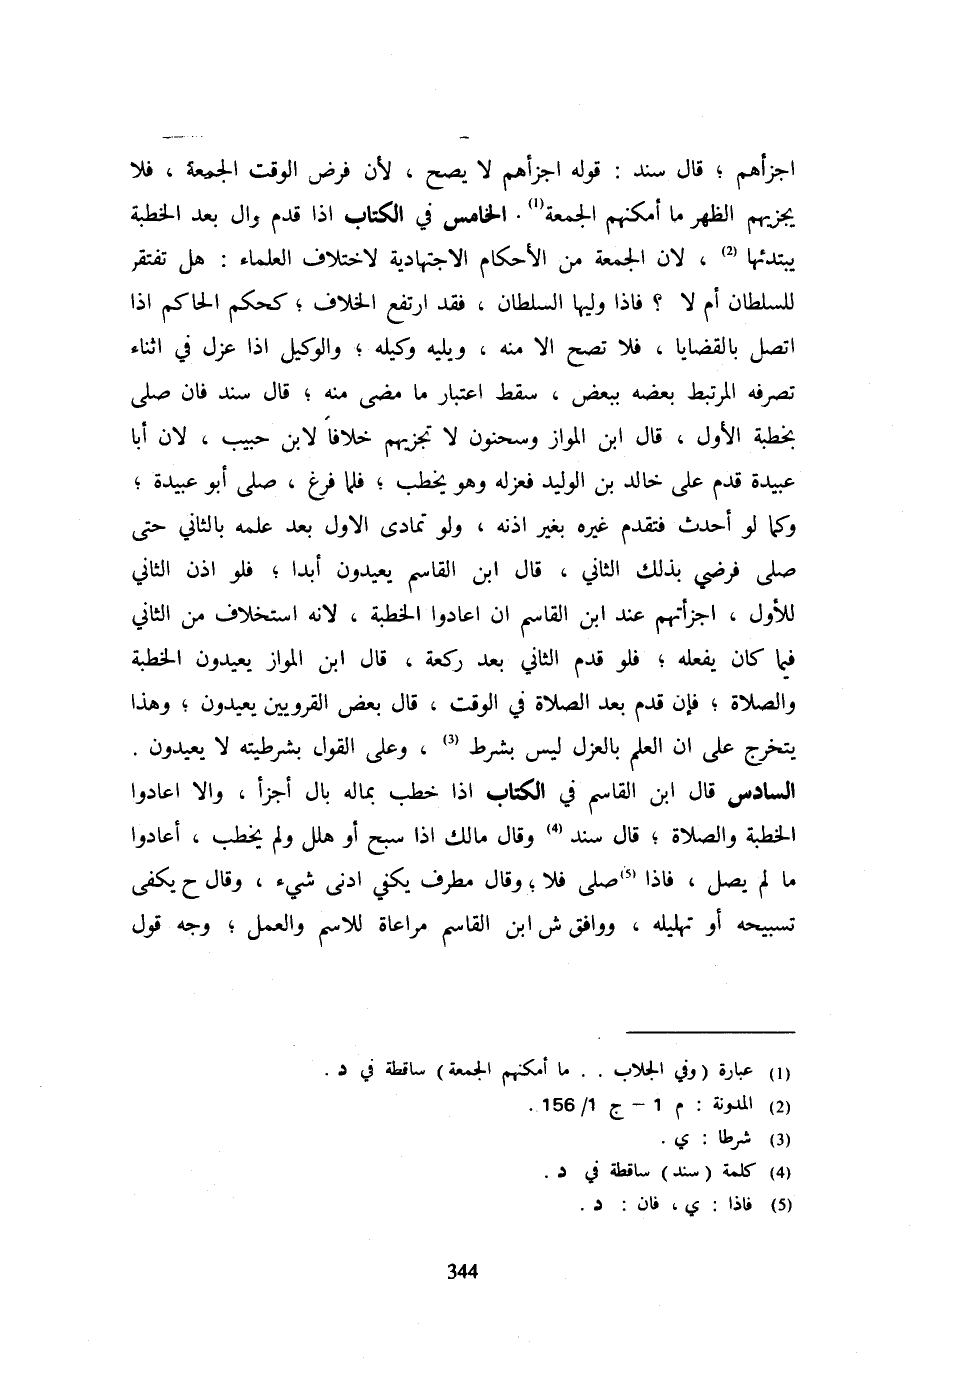 اجزأهم ؛ قال سند : قوله اجزأهم لا يصح ، لأن فرض الوقت الجمعة ، فلا
يجزيهم الظهر ما أمكنهم الجمعة(1) . الخامس في الكتاب اذا قدم وال بعد الخطبة
يبتدئها (2) ، لان الجمعة من الأحكام الاجتهادية لاختلاف العلماء : هل تفتقر
للسلطان أم لا ؟ فاذا وليها السلطان ، فقد ارتفع الخلاف ؛ كحكم الحاكم اذا
اتصل بالقضايا ، فلا تصح الا منه ، ويليه وكيله ؛ والوكيل اذا عزل في اثناء
تصرفه المرتبط بعضه ببعض ، سقط اعتبار ما مضى منه ؛ قال سند فان صلى
بخطبة الأول ، قال ابن المواز وسحنون لا تجزيهم خلافاً لابن حبيب ، لان أبا
عبيدة قدم على خالد بن الوليد فعزله وهو يخطب ؛ فلما فرغ ، صلى أبو عبيدة ؛
وكما لو أحدث فتقدم غيره بغير اذنه ، ولو تمادى الاول بعد علمه بالثاني حتى
صلى فرضي بذلك الثاني ، قال ابن القاسم يعيدون أبدا ؛ فلو اذن الثاني
للأول ، اجزأتهم عند ابن القاسم ان اعادوا الخطبة ، لانه استخلاف من الثاني
فيما كان يفعله ؛ فلو قدم الثاني بعد ركعة ، قال ابن المواز يعيدون الخطبة
والصلاة ؛ فإن قدم بعد الصلاة في الوقت ، قال بعض القرويين يعيدون ؛ وهذا
يتخرج على ان العلم بالعزل ليس بشرط (3) ، وعلى القول بشرطيته لا يعيدون .
السادس قال ابن القاسم في الكتاب اذا خطب بماله بال أجزأ ، والا اعادوا
الخطبة والصلاة ؛ قال سند (4) وقال مالك اذا سبح أو هلل ولم يخطب ، أعادوا
ما لم يصل ، فاذا (5) صلى فلا ؛ وقال مطرف يكني ادنى شيء ، وقال ح يكفى
تسبيحه أو تهليله ، ووافق ش ابن القاسم مراعاة للاسم والعمل ؛ وجه قول
(1) عبارة (وفي الجلاب . . ما أمكنهم الجمعة) ساقطة في د .
(2) المدونة : م 1 – ج 1/ 156 .
(3) شرطا : ي .
(4) كلمة (سند) ساقطة في د .
(5) فاذا : ي ، فان : د .
344